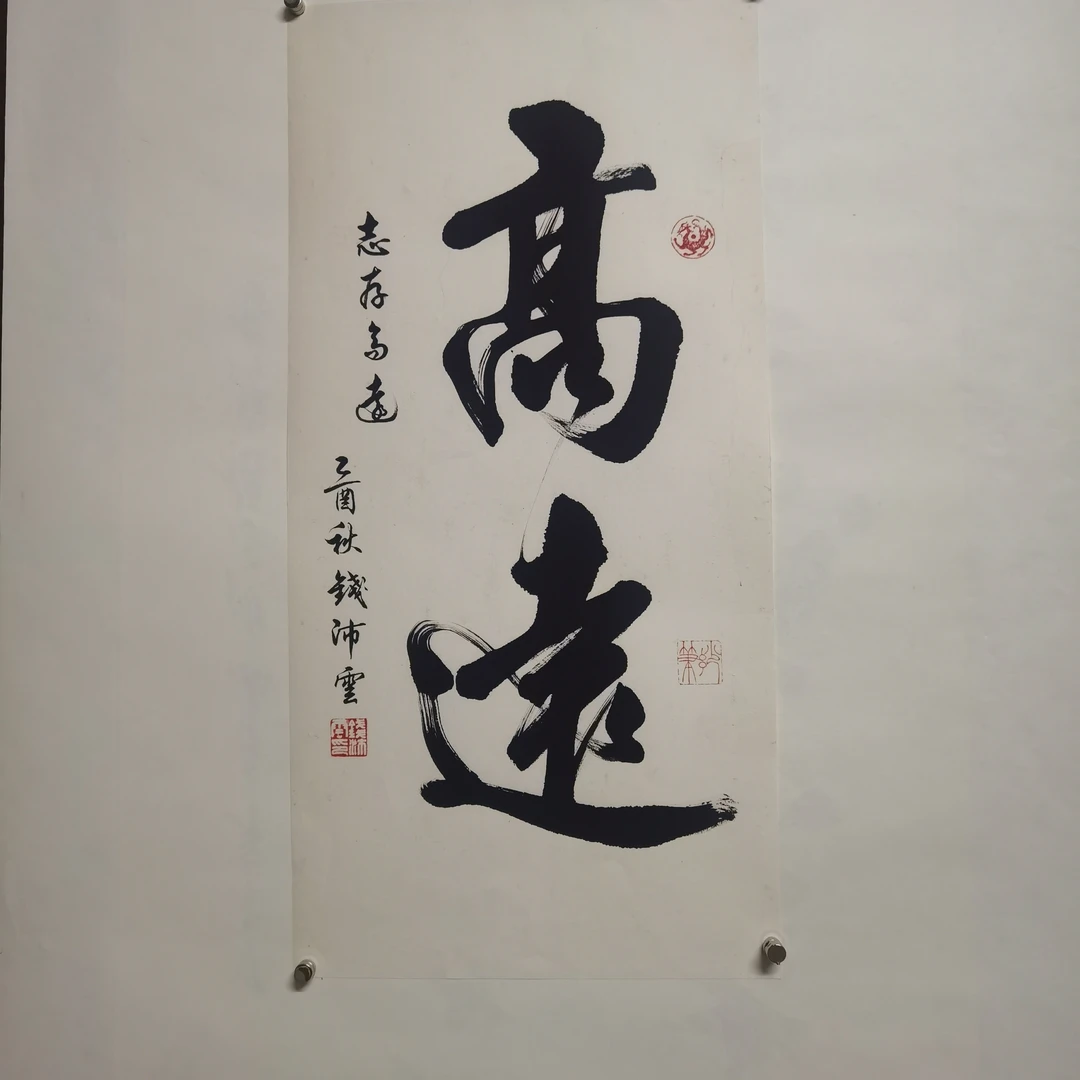 高遠
志存高遠
乙酉秋錢沛雲